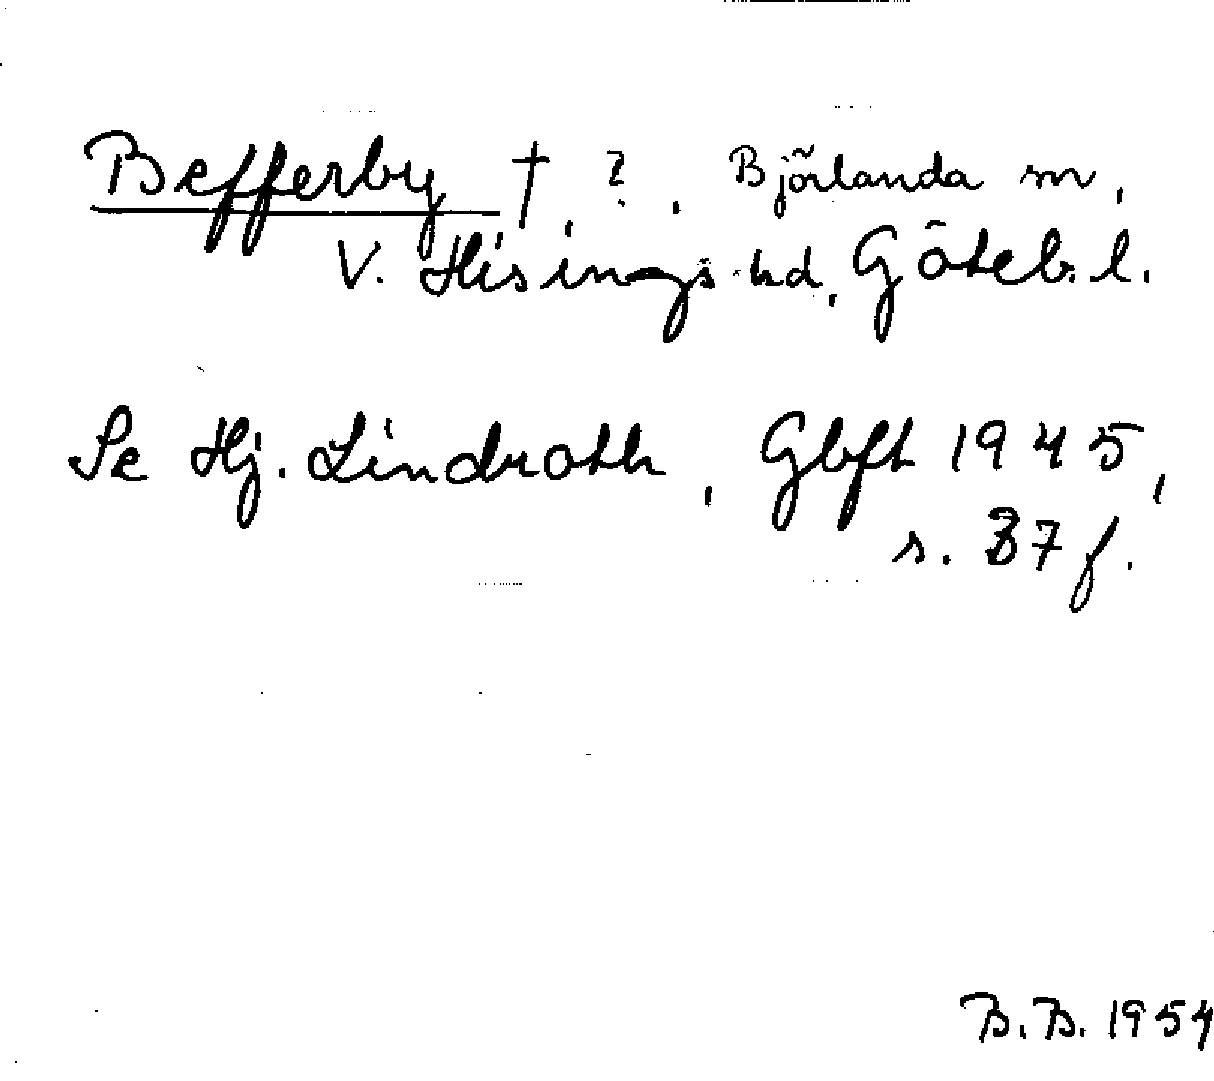 Befferby †, ?, Björlanda sn,
V. Hisings hd, Göteb. l.
Se Hj. Lindroth, Gbft 1945,
s. 37 f.
B. B. 1954